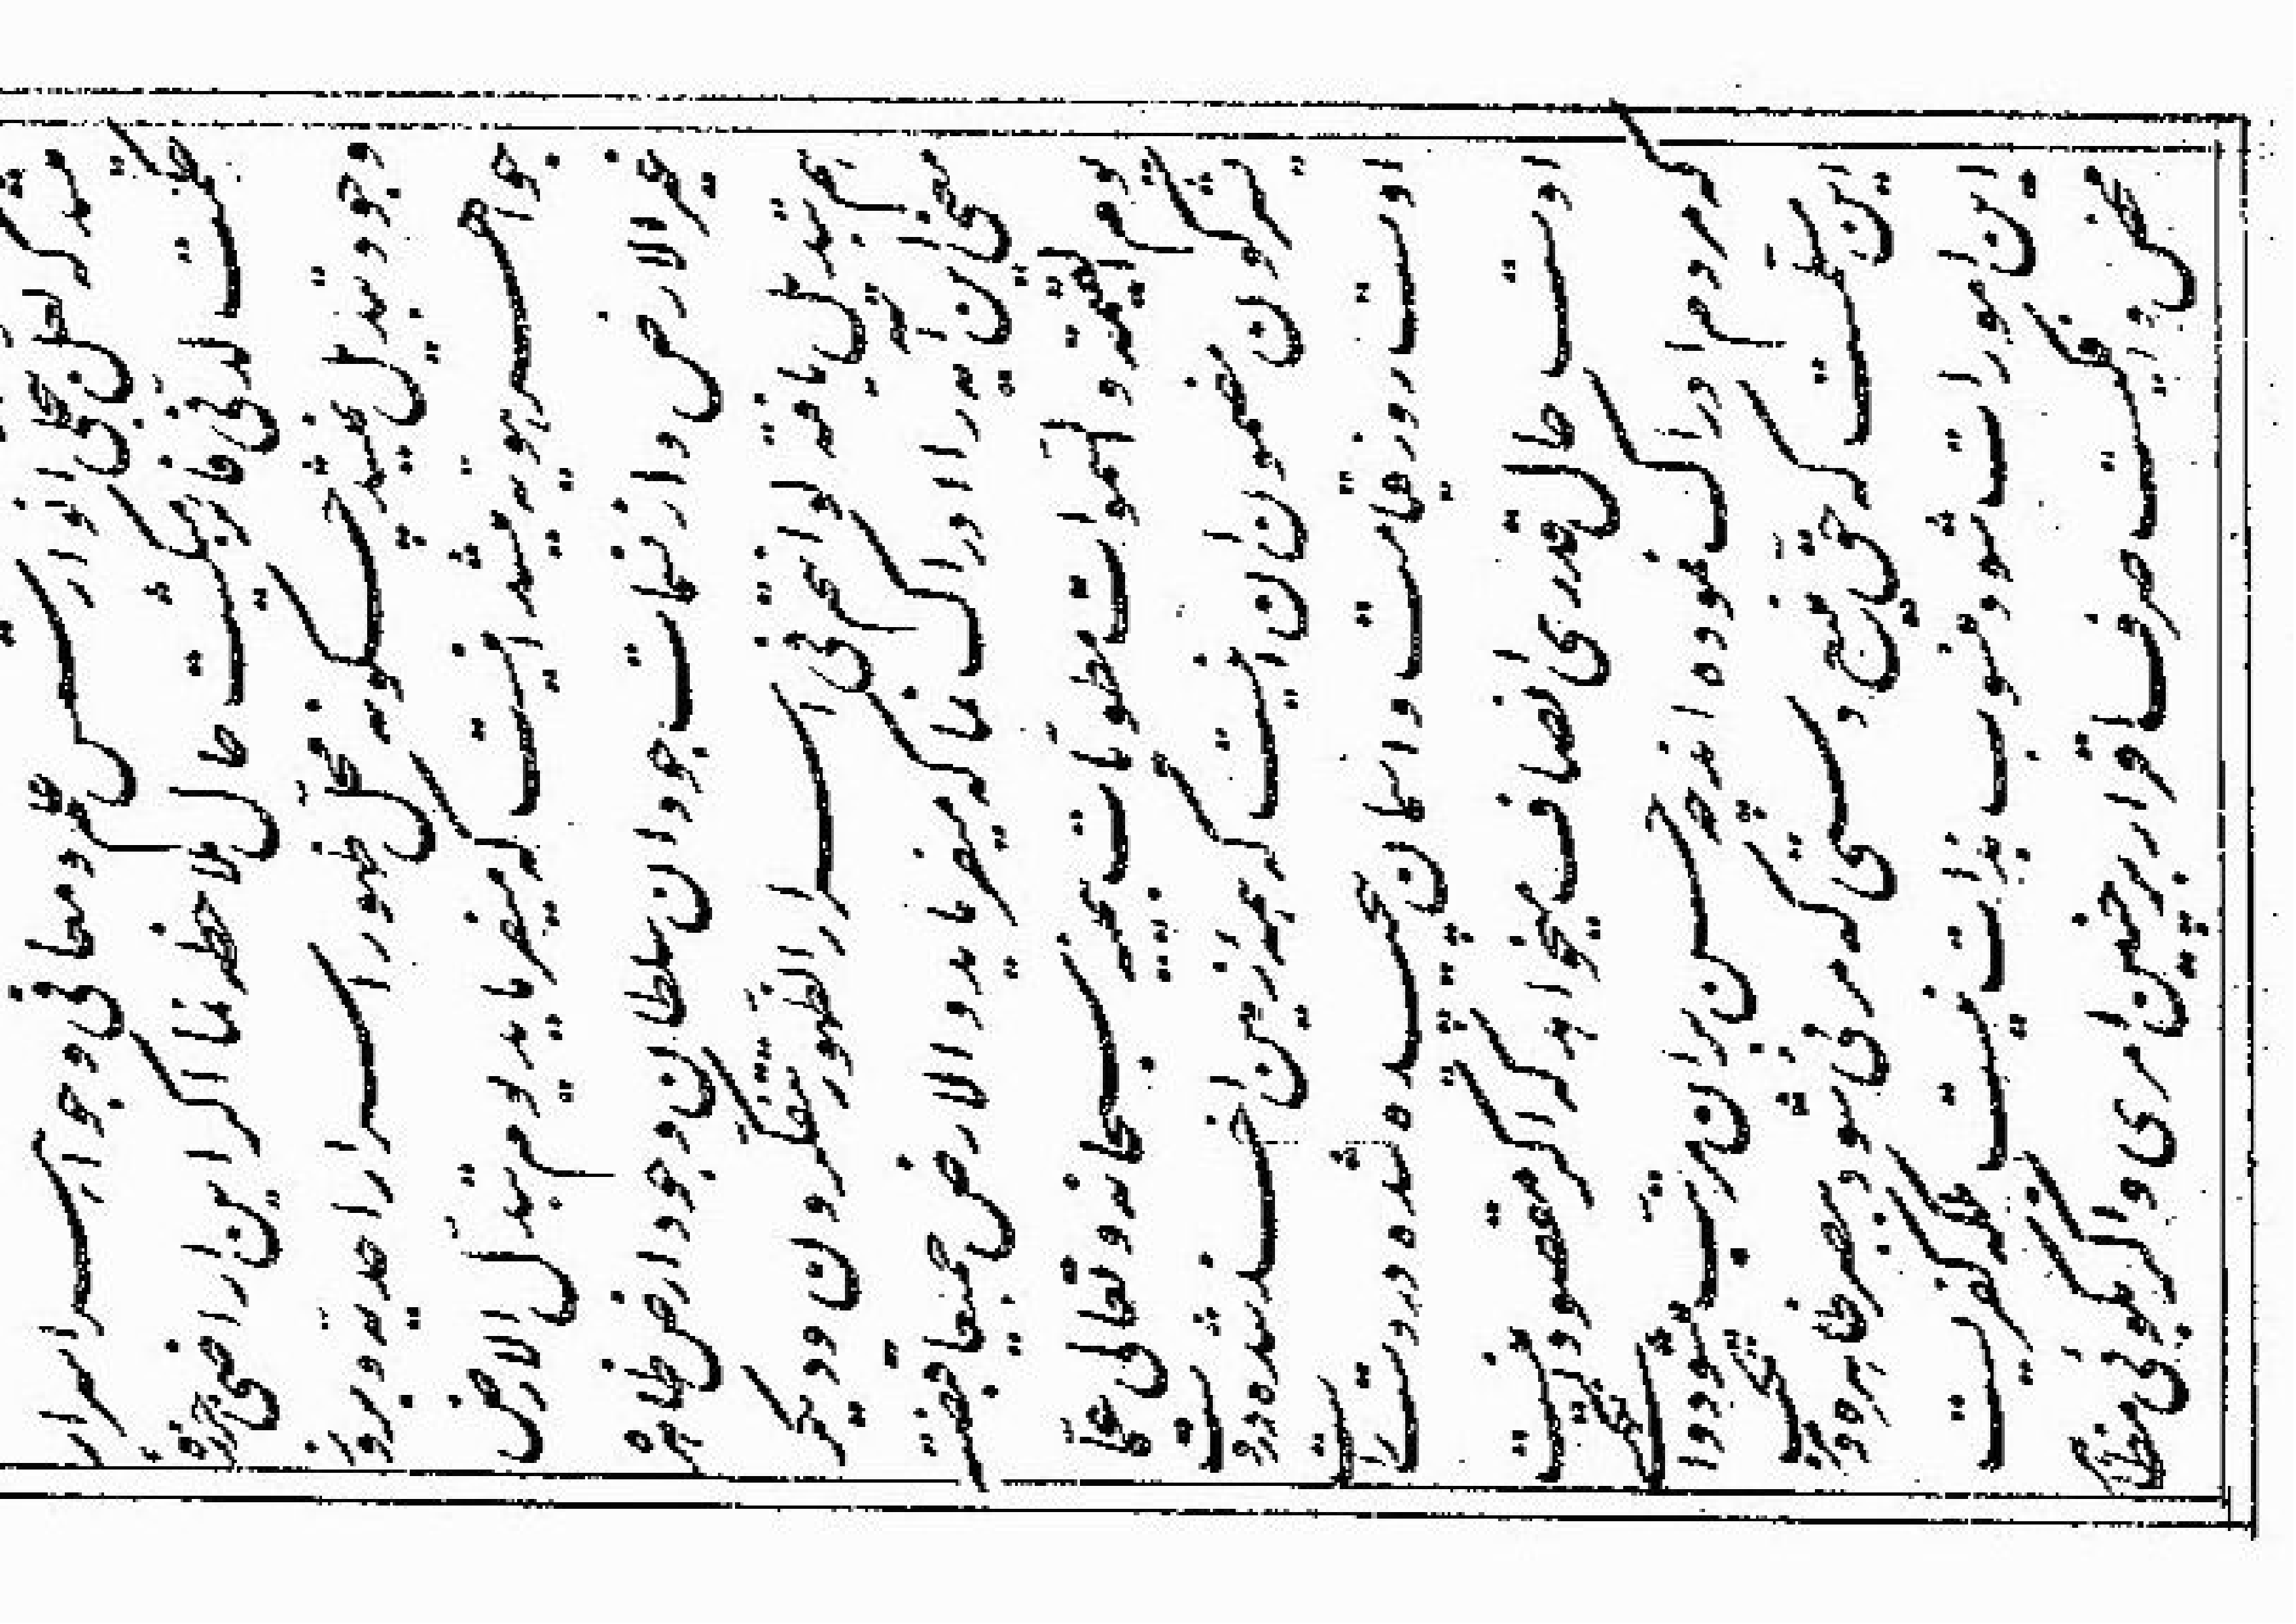 و معانی و جواهر اسرار
حکمت لدنی فائز گشت حال ملاحظه نما اگر این اراضی جرزه
وجود تبدیل نمیگشت چگونه محل ظهور اسرار احدیه و بروز
جواهر هویه میشد اینست که میفرماید یوم تبدل الارض
غیر الارض و از نسمات جود ان سلطان وجود ارض ظاهره
هم تبدیل یافته لو انتم فی اسرار الظهور تتفکرون و دیگر
معنی این آیه را ادراک نما که میفرماید والارض جمیعا قبضته
یوم القیمة و السموات مطویات بیمینه سبحانه و تعالی عما
یشرکون مضمون ان اینست که همه زمین اخذ شده در دست
اوست روز قیامت و اسمان پیچیده شده در دست راست
اوست حال قدری انصاف میخواهد که اگر مقصود اینست که
مردم ادراک نموده اند چه حسن بر ان مترتب میشود و
این مسلم است که حق منیع دستی که مرئی شود ببصر ظاهر و مرتکب
این امورات شود منسوب بذات نیست بلکه کفریست
محض و افکی است صرف اقرار بر چنین امری و اگر بگوئی مظاهر